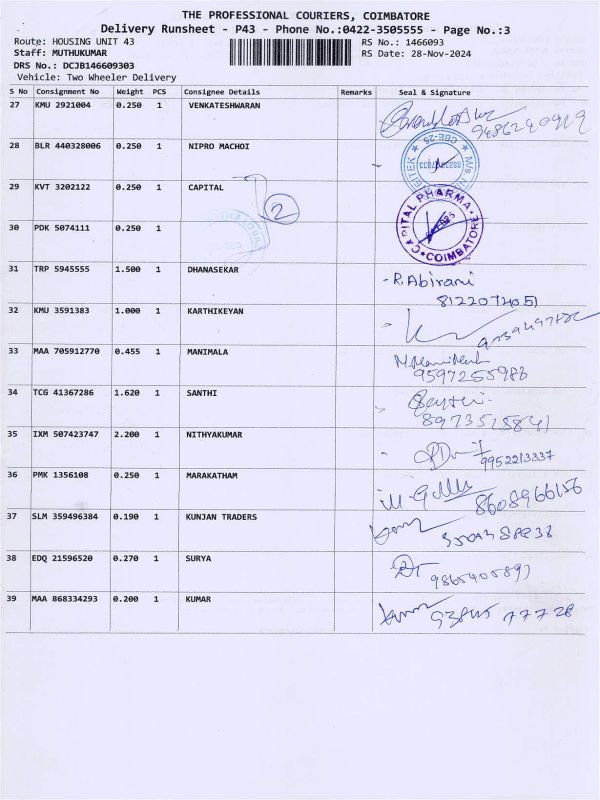 THE PROFESSIONAL COURIERS, COIMBATORE
Delivery Runsheet - P43 - Phone No.:0422-3505555 - Page No.:3
Route: HOUSING UNIT 43 RS No.: 1466093
Staff: MUTHUKUMAR RS Date: 28-Nov-2024
DRS No.: DCJB146609303
Vehicle: Two Wheeler Delivery
S No Consignment No Weight PCS Consignee Details Remarks Seal & Signature
27 KMU 2921004 0.250 1 VENKATESHWARAN
28 BLR 440328006 0.250 1 NIPRO MACHOI
CBE-25
29 KVT 3202122 0.250 1 CAPITAL
2
CAPITAL PHARMA
COIMBATORE
30 PDK 5074111 0.250 1
31 TRP 5945555 1.500 1 DHANASEKAR R.Abirami
8122072051
32 KMU 3591383 1.000 1 KARTHIKEYAN
33 MAA 705912770 0.455 1 MANIMALA
9597255988
34 TCG 41367286 1.620 1 SANTHI
35 IXM 507423747 2.200 1 NITHYAKUMAR 9952213337
36 PMK 1356108 0.250 1 MARAKATHAM
37 SLM 359496384 0.190 1 KUNJAN TRADERS
38 EDQ 21596520 0.270 1 SURYA
39 MAA 868334293 0.200 1 KUMAR